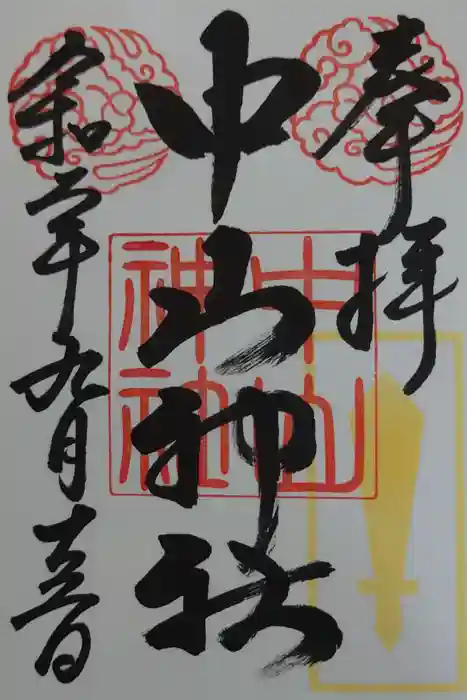 奉拝
中山神社
令和二年九月
中山
神社